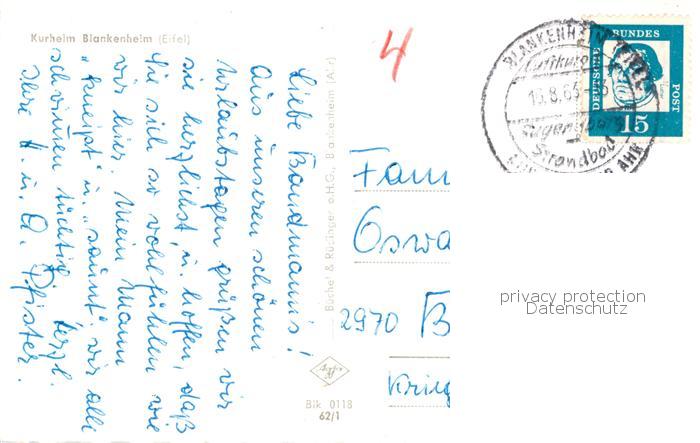 Kurheim Blankenheim (Eifel)
Liebe Bandmann's!
Aus unseren schönen
Urlaubstagen grüßen wir
sie herzlichst, u. hoffen, daß
Sie sich so wohl fühlen wie
wir hier. Mein Mann
"kneipt" u. "saunt". wir alle
schwimmen tüchtig. Herzl.
Ihre H. u. A. Pfister.
Büchel & Rüdinger o.H.G., Blankenheim (Ahr)
Blk 0118
62/1
4
Fam
Oswa
2970 B
Krieg
BLANKENHEIM
Luftkurort
13.8.63
Strandbad
AHR
DEUTSCHE
BUNDES
POST
15
privacy protection
Datenschutz